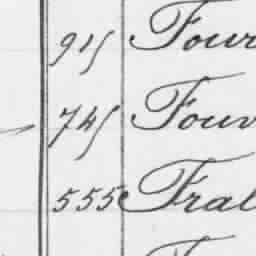 915 Four
745 Fouv
555 Fral